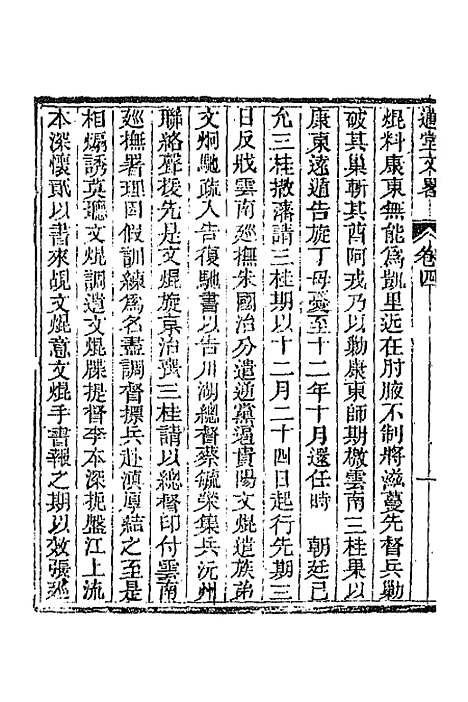 堂文畧 卷四 一
焜料康東無能為凱里近在肘腋不制將滋蔓先督兵勦
破其巢斬其酋阿戎乃以勦康東師期檄雲南三桂果以
康東遠遁告旋丁母憂至十二年十月還任時　朝廷已
允三桂撤藩請三桂期以十二月二十四日起行先期三
日反戕雲南廵撫朱國治分遣逆黨逼貴陽文焜遣族弟
文炯馳疏入告復馳書以告川湖總督蔡毓榮集兵沅州
聯絡聲援先是文焜旋京治喪三桂請以總督印付雲南
廵撫署理因假訓練為名盡調督摽兵赴滇厚結之至是
相煽誘莫聽文焜調遣文焜牒提督李本深扼盤江上流
本深懷貳以書來覘文焜意文焜手書報之期以效張廵